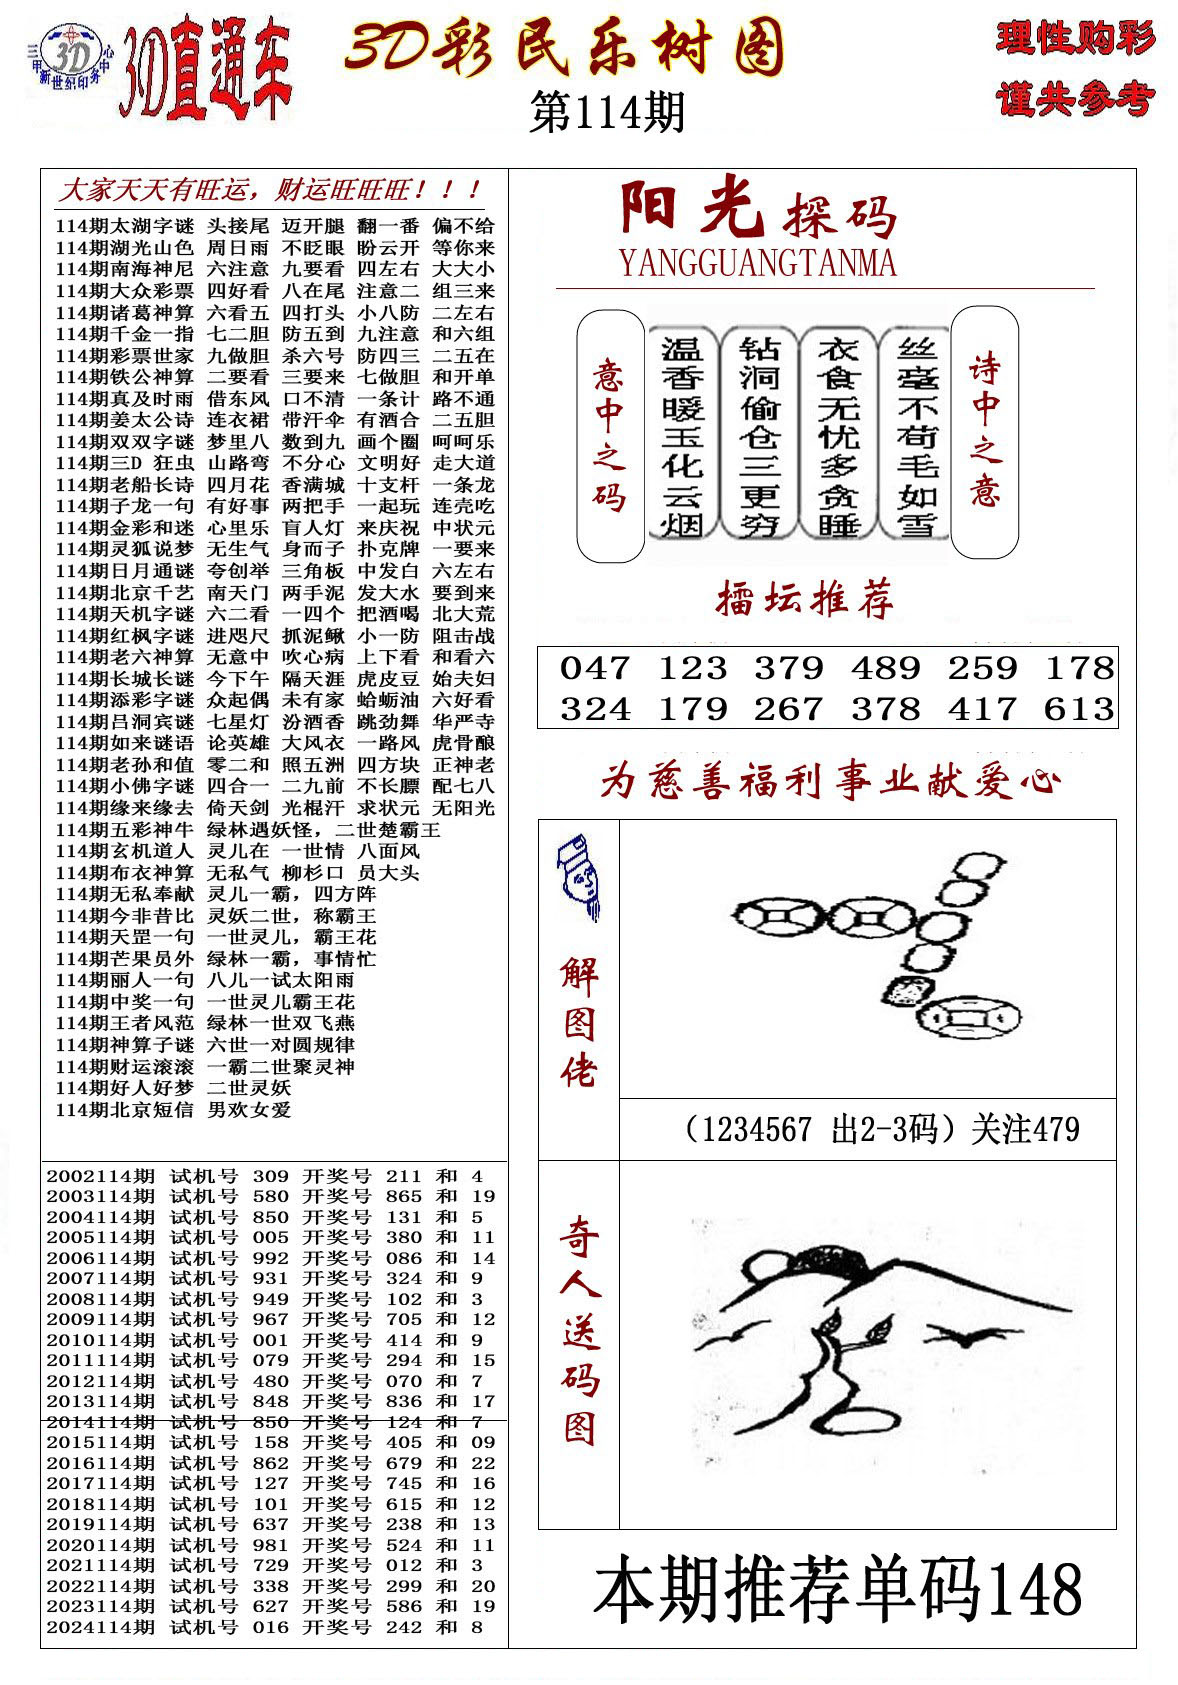 三甲新世纪印务中心
3D
3D直通车
3D彩民乐树图
第114期
理性购彩
谨共参考
大家天天有旺运，财运旺旺旺！！！
114期太湖字谜 头接尾 迈开腿 翻一番 偏不给
114期湖光山色 周日雨 不眨眼 盼云开 等你来
114期南海神尼 六注意 九要看 四左右 大大小
114期大众彩票 四好看 八在尾 注意二 组三来
114期诸葛神算 六看五 四打头 小八防 二左右
114期千金一指 七二胆 防五到 九注意 和六组
114期彩票世家 九做胆 杀六号 防四三 二五在
114期铁公神算 二要看 三要来 七做胆 和开单
114期真及时雨 借东风 口不清 一条计 路不通
114期姜太公诗 连衣裙 带汗伞 有酒合 二五胆
114期双双字谜 梦里八 数到九 画个圈 呵呵乐
114期三D 狂虫 山路弯 不分心 文明好 走大道
114期老船长诗 四月花 香满城 十支杆 一条龙
114期子龙一句 有好事 两把手 一起玩 连壳吃
114期金彩和迷 心里乐 盲人灯 来庆祝 中状元
114期灵狐说梦 无生气 身而子 扑克牌 一要来
114期日月通谜 夸创举 三角板 中发白 六左右
114期北京千艺 南天门 两手泥 发大水 要到来
114期天机字谜 六二看 一四个 把酒喝 北大荒
114期红枫字谜 进咫尺 抓泥鳅 小一防 阻击战
114期老六神算 无意中 吹心病 上下看 和看六
114期长城长谜 今下午 隔天涯 虎皮豆 始夫妇
114期添彩字谜 众起偶 未有家 蛤蛎油 六好看
114期吕洞宾谜 七星灯 汾酒香 跳劲舞 华严寺
114期如来谜语 论英雄 大风衣 一路风 虎骨酿
114期老孙和值 零二和 照五洲 四方块 正神老
114期小佛字谜 四合一 二九前 不长膘 配七八
114期缘来缘去 倚天剑 光棍汗 求状元 无阳光
114期五彩神牛 绿林遇妖怪，二世楚霸王
114期玄机道人 灵儿在 一世情 八面风
114期布衣神算 无私气 柳杉口 员大头
114期无私奉献 灵儿一霸，四方阵
114期今非昔比 灵妖二世，称霸王
114期天罡一句 一世灵儿，霸王花
114期芒果员外 绿林一霸，事情忙
114期丽人一句 八儿一试太阳雨
114期中奖一句 一世灵儿霸王花
114期王者风范 绿林一世双飞燕
114期神算子谜 六世一对圆规律
114期财运滚滚 一霸二世聚灵神
114期好人好梦 二世灵妖
114期北京短信 男欢女爱
2002114期 试机号 309 开奖号 211 和 4
2003114期 试机号 580 开奖号 865 和 19
2004114期 试机号 850 开奖号 131 和 5
2005114期 试机号 005 开奖号 380 和 11
2006114期 试机号 992 开奖号 086 和 14
2007114期 试机号 931 开奖号 324 和 9
2008114期 试机号 949 开奖号 102 和 3
2009114期 试机号 967 开奖号 705 和 12
2010114期 试机号 001 开奖号 414 和 9
2011114期 试机号 079 开奖号 294 和 15
2012114期 试机号 480 开奖号 070 和 7
2013114期 试机号 848 开奖号 836 和 17
2014114期 试机号 850 开奖号 124 和 7
2015114期 试机号 158 开奖号 405 和 09
2016114期 试机号 862 开奖号 679 和 22
2017114期 试机号 127 开奖号 745 和 16
2018114期 试机号 101 开奖号 615 和 12
2019114期 试机号 637 开奖号 238 和 13
2020114期 试机号 981 开奖号 524 和 11
2021114期 试机号 729 开奖号 012 和 3
2022114期 试机号 338 开奖号 299 和 20
2023114期 试机号 627 开奖号 586 和 19
2024114期 试机号 016 开奖号 242 和 8
阳光探码
YANGGUANGTANMA
意中之码
温香暖玉化云烟
钻洞偷仓三更穷
衣食无忧多贪睡
丝毫不苟毛如雪
诗中之意
擂坛推荐
047 123 379 489 259 178
324 179 267 378 417 613
为慈善福利事业献爱心
解图佬
（1234567 出2-3码）关注479
奇人送码图
本期推荐单码148